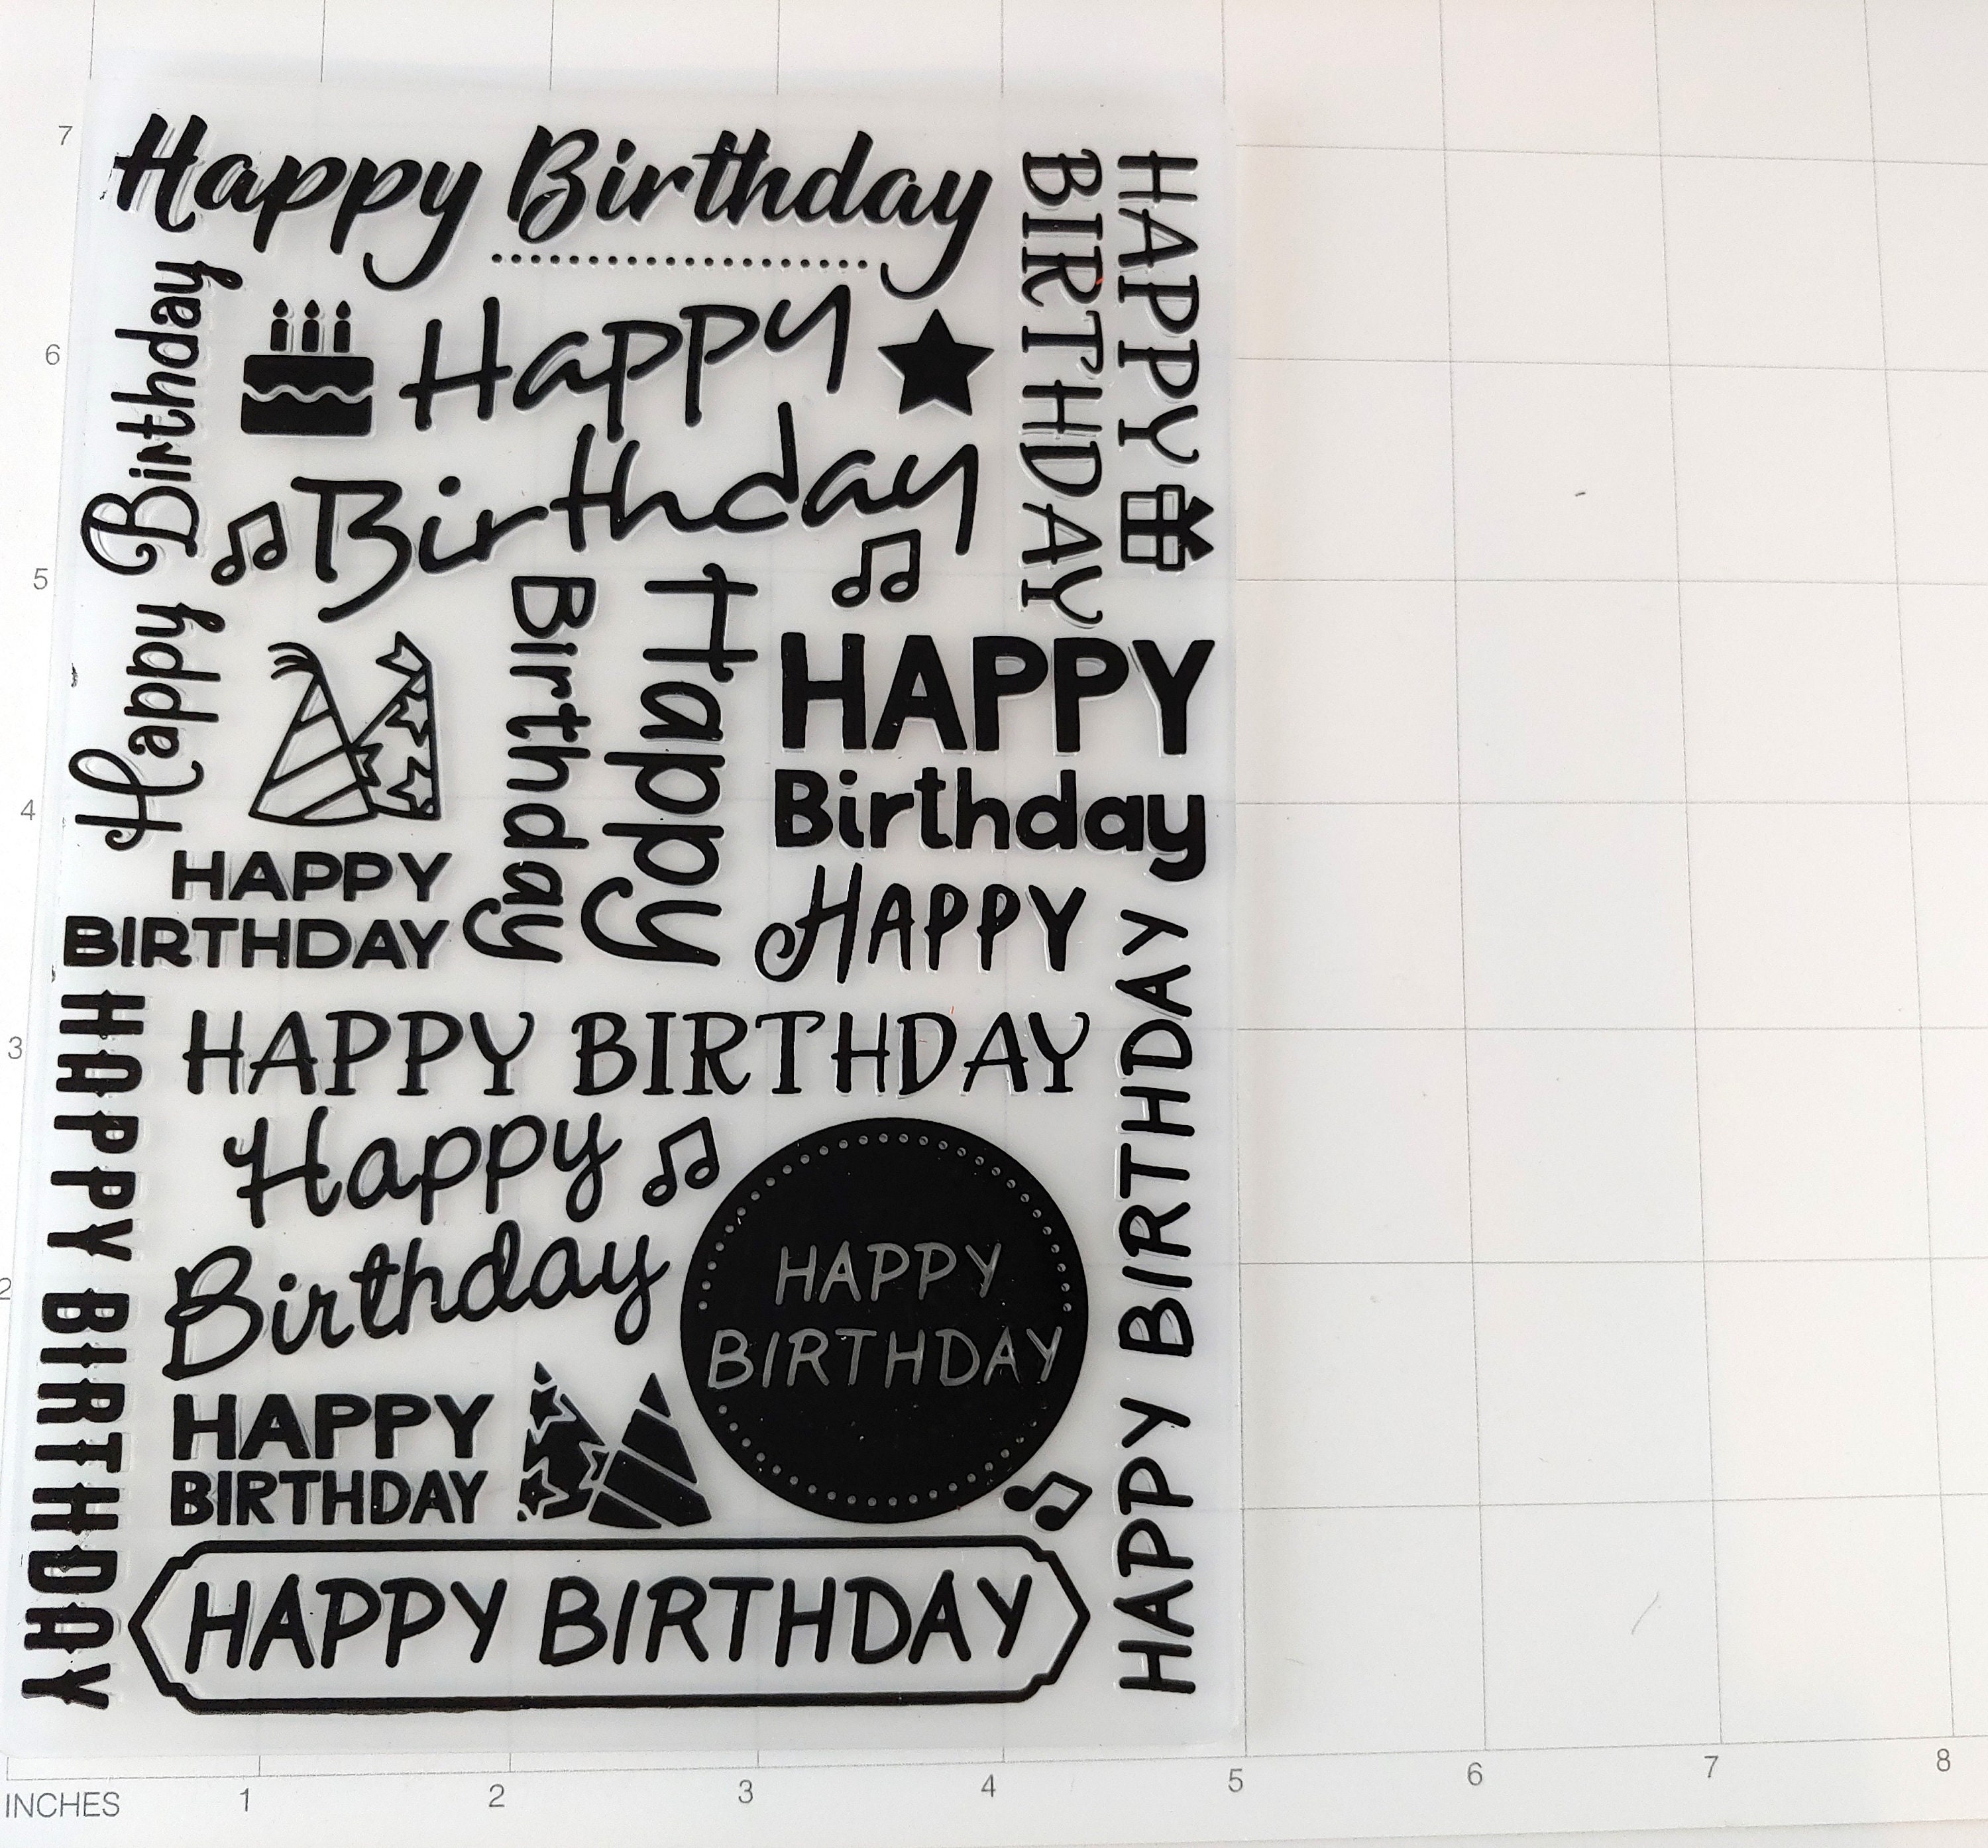 7
Happy Birthday
HAPPY
BIRTHDAY
Happy Birthday
6
Happy
Birthday
5
Happy
Birthday
HAPPY
Birthday
4
HAPPY
BIRTHDAY
HAPPY
HAPPY BIRTHDAY
3
HAPPY BIRTHDAY
HAPPY BIRTHDAY
Happy
Birthday
2
HAPPY
BIRTHDAY
HAPPY
BIRTHDAY
HAPPY BIRTHDAY
INCHES 1 2 3 4 5 6 7 8